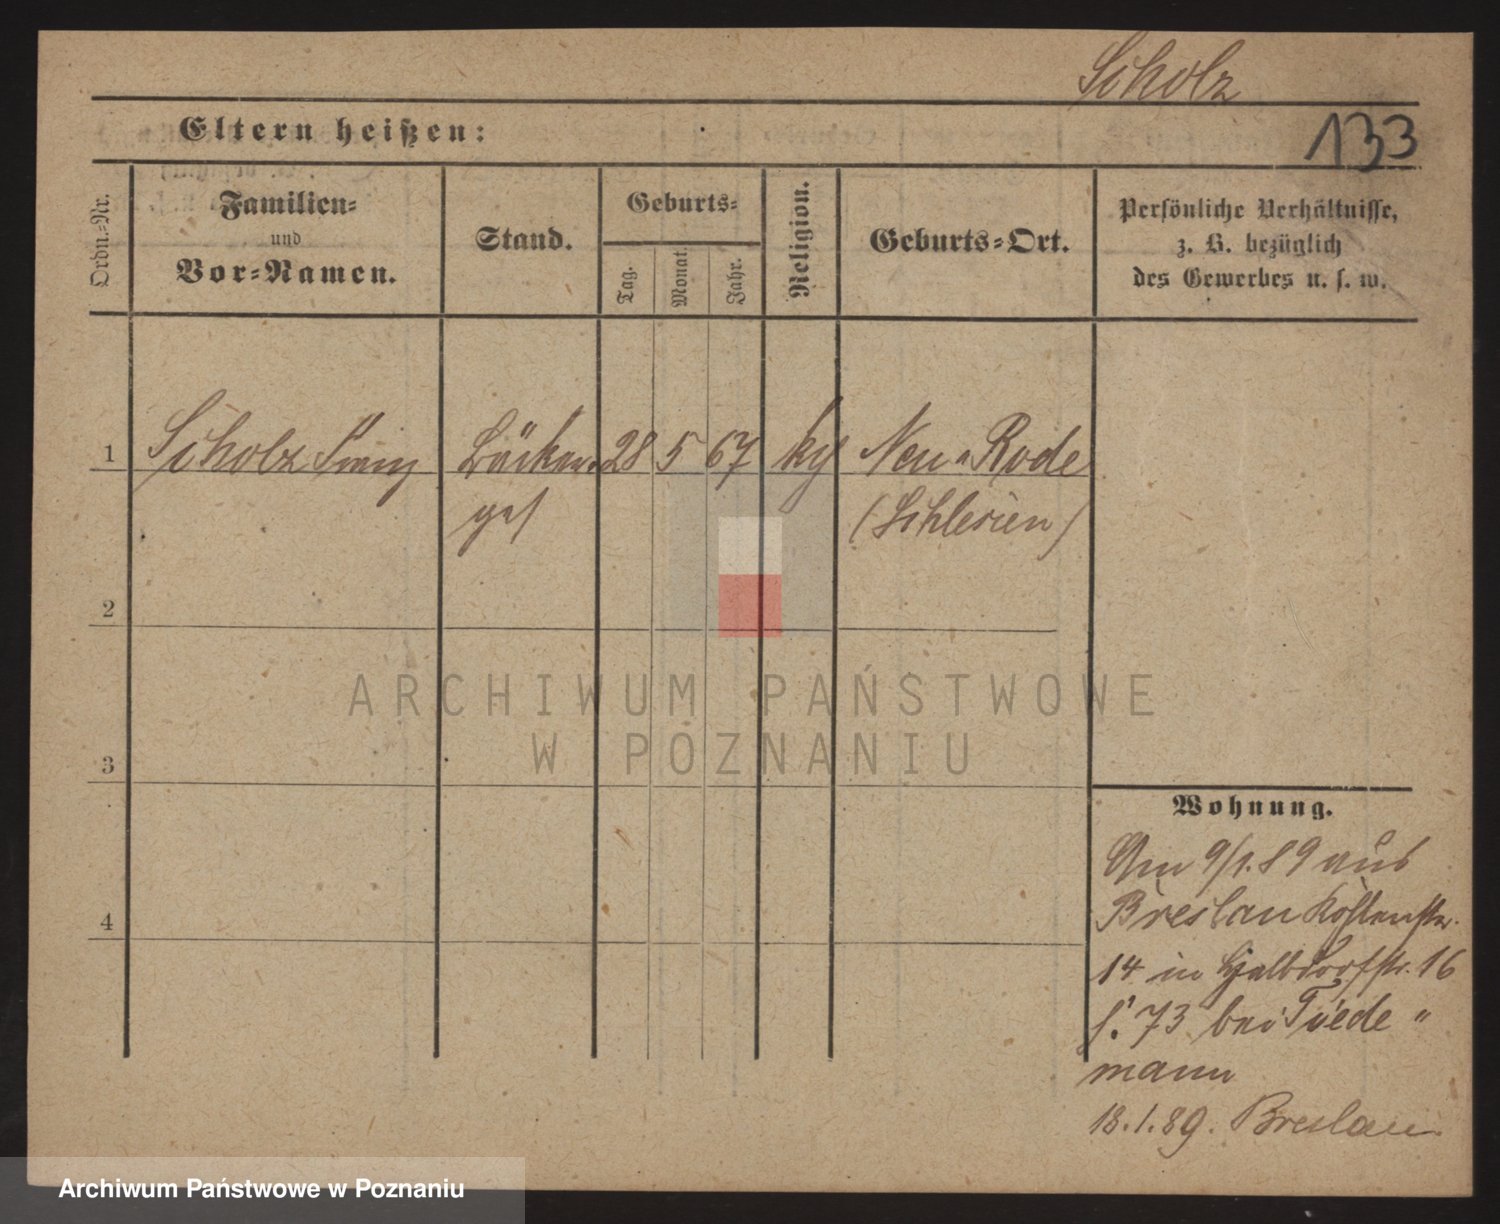 Scholz
133
Eltern heißen:
Ordn.-Nr.
Familien-
und
Vor-Namen.
Stand.
Geburts-
Tag.
Monat.
Jahr.
Religion.
Geburts-Ort.
Persönliche Verhältnisse,
z. B. bezüglich
des Gewerbes u. s. w.
1 Scholz Franz Bäcker 28 5 67 Neu-Rode
ges (Schlesien)
2
3
4
Wohnung.
Am 9/1.89 aus
Breslau
14 in Halbdorfstr. 16
73 bei Tiede"
mann
18.1.89. Breslau
ARCHIWUM PAŃSTWOWE
W POZNANIU
Archiwum Państwowe w Poznaniu